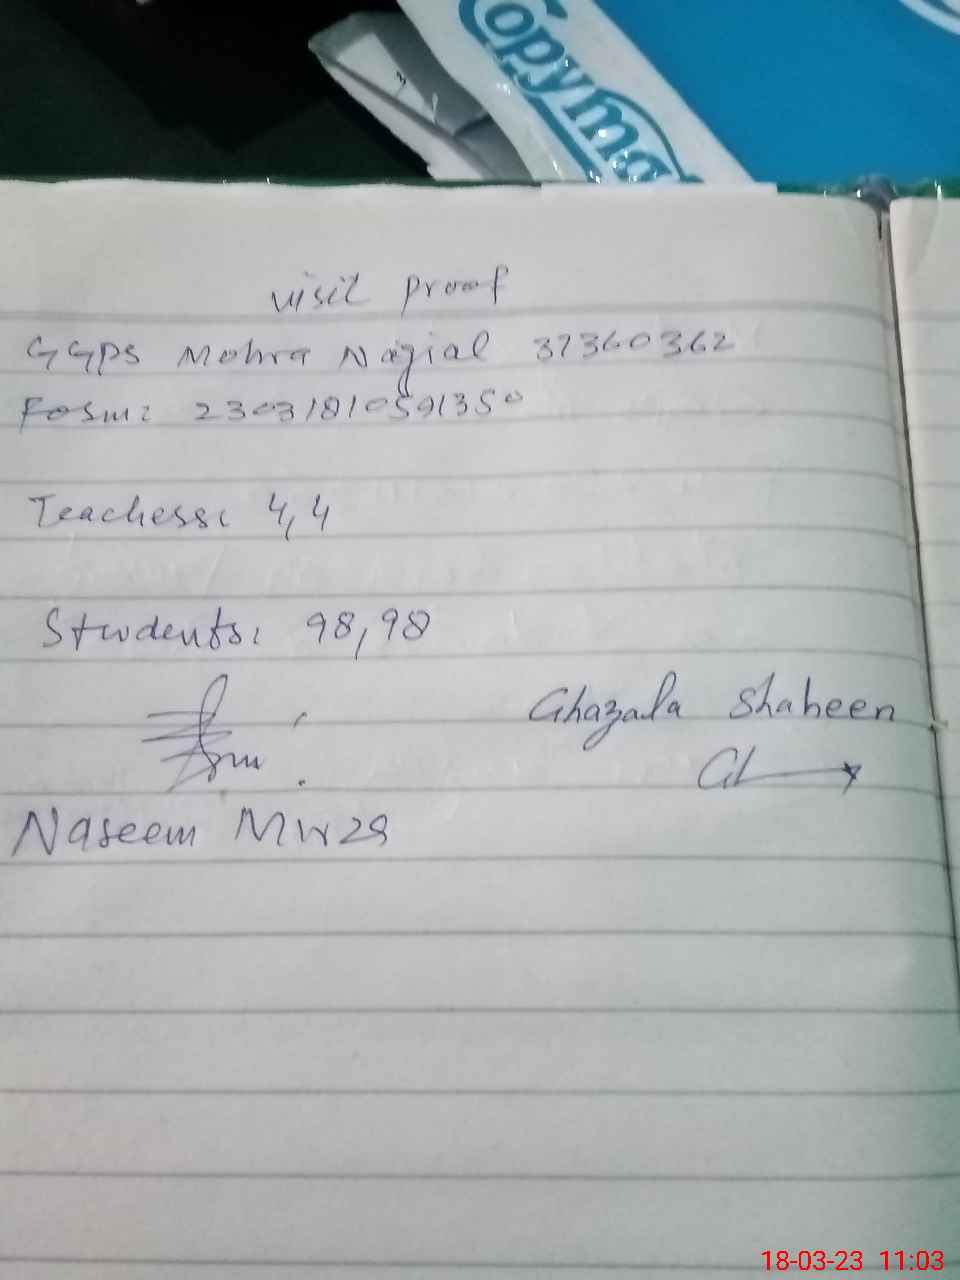 Copymat
visit proof
GGPS Mohra Nagial 37360362
Fosm: 23031810591350
Teachers: 4,4
Students: 98,98
Ghazala Shaheen
Naseem Mirza
18-03-23 11:03